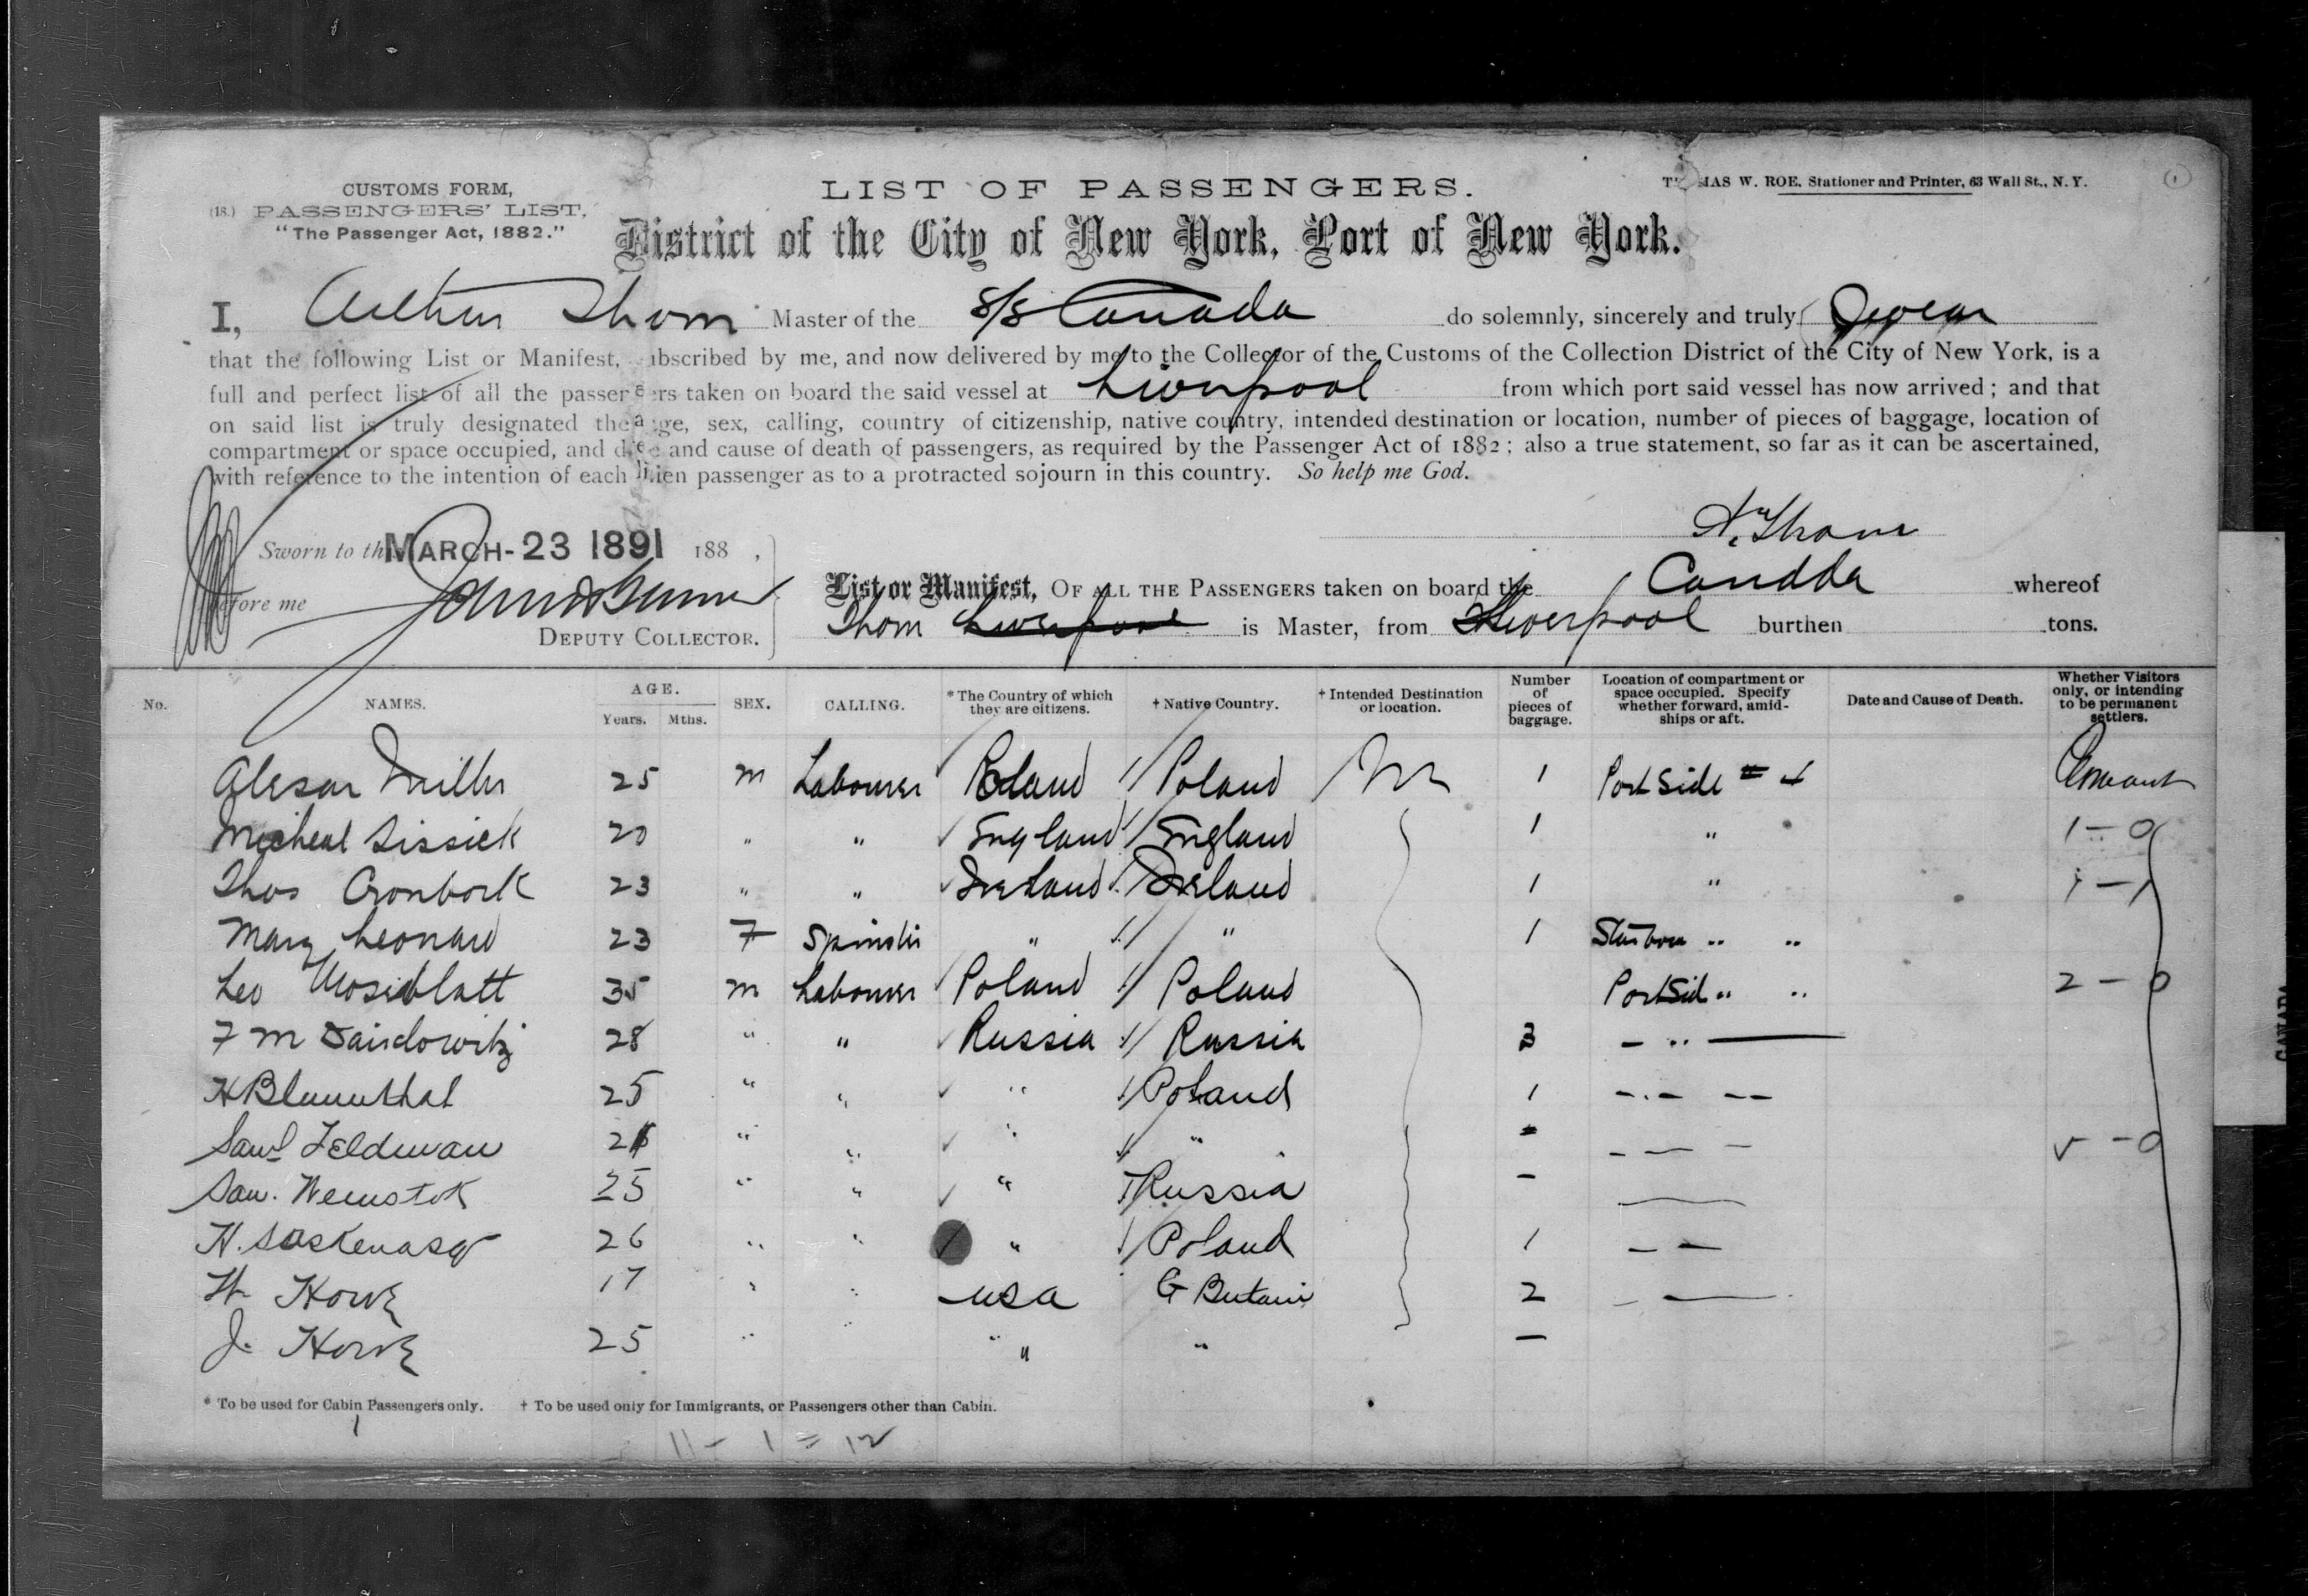 CUSTOMS FORM,
(18.) PASSENGERS' LIST,
"The Passenger Act, 1882."
LIST OF PASSENGERS.
W. ROE, Stationer and Printer, 63 Wall St., N. Y.
District of the City of New York, Port of New York.
I, Arthur Thom Master of the S/S Canada do solemnly, sincerely and truly Swear
that the following List or Manifest, subscribed by me, and now delivered by me to the Collector of the Customs of the Collection District of the City of New York, is a
full and perfect list of all the passengers taken on board the said vessel at Liverpool from which port said vessel has now arrived; and that
on said list is truly designated the age, sex, calling, country of citizenship, native country, intended destination or location, number of pieces of baggage, location of
compartment or space occupied, and date and cause of death of passengers, as required by the Passenger Act of 1882; also a true statement, so far as it can be ascertained,
with reference to the intention of each alien passenger as to a protracted sojourn in this country. So help me God.
A. Thom
Sworn to th MARCH-23 1891 188 ,
before me
DEPUTY COLLECTOR.
List or Manifest, OF ALL THE PASSENGERS taken on board the Canada whereof
Thom Liverpool is Master, from Liverpool burthen tons.
No. NAMES. AGE. Years. Mths. SEX. CALLING. * The Country of which they are citizens. † Native Country. † Intended Destination or location. Number of pieces of baggage. Location of compartment or space occupied. Specify whether forward, amidships or aft. Date and Cause of Death. Whether Visitors only, or intending to be permanent settlers.
Miller 25 m Labourer Poland Poland 1 Port Side
Micheal Sissick 20 " " England England 1 " 1 - 0
Thos Cronbork 23 " " Ireland Ireland 1 "
Mary Leonard 23 F Spinster " " 1 " "
Leo 35 m Labourer Poland Poland Port Sid " " 2 - 0
F M 28 " " Russia Russia 3 - " -
H Blumuthal 25 " " " Poland 1
Saml Feldman " " " "
Sam. 25 " " " Russia -
H. 26 " " " Poland 1 - -
H Howe 17 " " USA G Britain 2 - -
J. Howe 25 " " " " -
* To be used for Cabin Passengers only. † To be used only for Immigrants, or Passengers other than Cabin.
11 - 1 = 12
CANADA